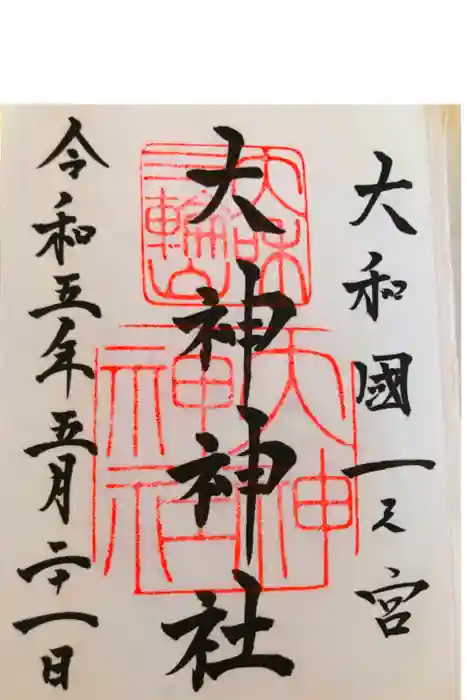 大和國一之宮
大神神社
令和五年五月二十一日
三輪山
大神
神社